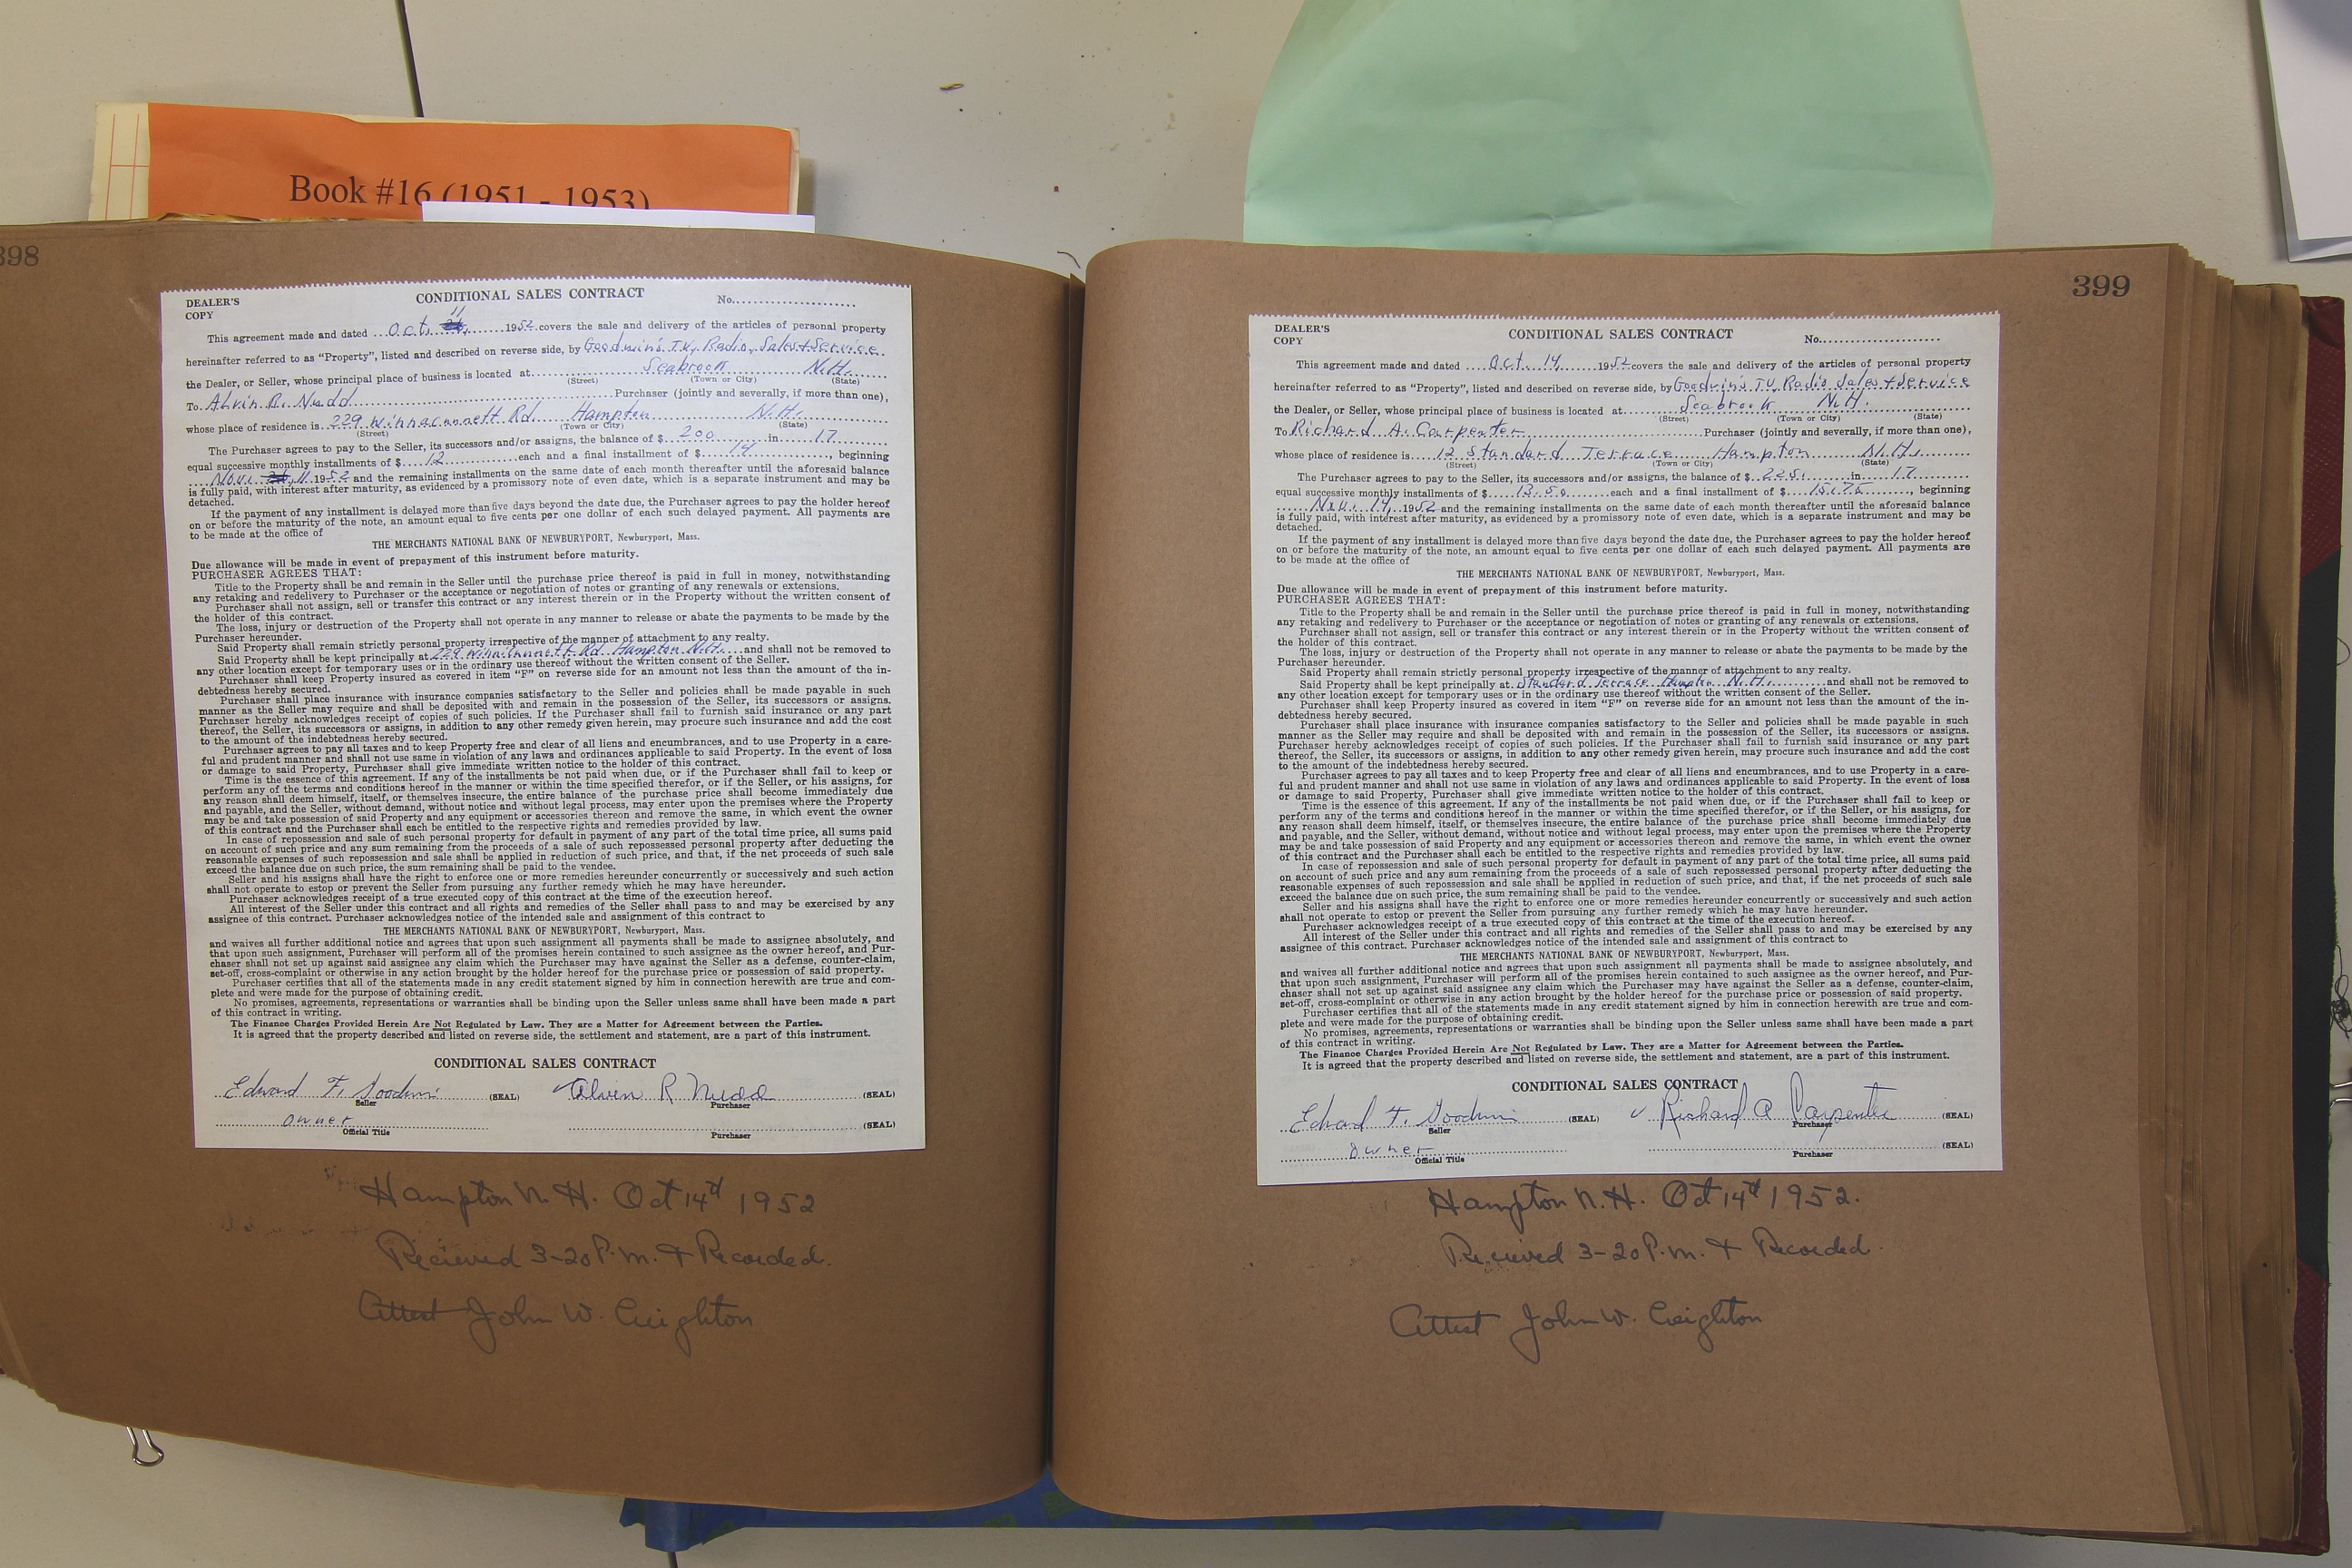 Book #16 (1951 - 1953)
398
DEALER'S
COPY
CONDITIONAL SALES CONTRACT
No.
This agreement made and dated Oct. 11 1952 covers the sale and delivery of the articles of personal property
hereinafter referred to as “Property”, listed and described on reverse side, by Goodwin's T.V. Radio, Sales & Service
the Dealer, or Seller, whose principal place of business is located at Seabrook N.H.
(Street) (Town or City) (State)
To Alvin R. Nudd Purchaser (jointly and severally, if more than one),
whose place of residence is 229 Winnacunnett Rd. Hampton N.H.
(Street) (Town or City) (State)
The Purchaser agrees to pay to the Seller, its successors and/or assigns, the balance of $ 200 in 17
equal successive monthly installments of $ 12 each and a final installment of $ 14, beginning
Nov. 11 1952 and the remaining installments on the same date of each month thereafter until the aforesaid balance
is fully paid, with interest after maturity, as evidenced by a promissory note of even date, which is a separate instrument and may be
detached.
If the payment of any installment is delayed more than five days beyond the date due, the Purchaser agrees to pay the holder hereof
on or before the maturity of the note, an amount equal to five cents per one dollar of each such delayed payment. All payments are
to be made at the office of
THE MERCHANTS NATIONAL BANK OF NEWBURYPORT, Newburyport, Mass.
Due allowance will be made in event of prepayment of this instrument before maturity.
PURCHASER AGREES THAT:
Title to the Property shall be and remain in the Seller until the purchase price thereof is paid in full in money, notwithstanding
any retaking and redelivery to Purchaser or the acceptance or negotiation of notes or granting of any renewals or extensions.
Purchaser shall not assign, sell or transfer this contract or any interest therein or in the Property without the written consent of
the holder of this contract.
The loss, injury or destruction of the Property shall not operate in any manner to release or abate the payments to be made by the
Purchaser hereunder.
Said Property shall remain strictly personal property irrespective of the manner of attachment to any realty.
Said Property shall be kept principally at 229 Winnacunnett Rd Hampton N.H. and shall not be removed to
any other location except for temporary uses or in the ordinary use thereof without the written consent of the Seller.
Purchaser shall keep Property insured as covered in item “F” on reverse side for an amount not less than the amount of the in-
debtedness hereby secured.
Purchaser shall place insurance with insurance companies satisfactory to the Seller and policies shall be made payable in such
manner as the Seller may require and shall be deposited with and remain in the possession of the Seller, its successors or assigns.
Purchaser hereby acknowledges receipt of copies of such policies. If the Purchaser shall fail to furnish said insurance or any part
thereof, the Seller, its successors or assigns, in addition to any other remedy given herein, may procure such insurance and add the cost
to the amount of the indebtedness hereby secured.
Purchaser agrees to pay all taxes and to keep Property free and clear of all liens and encumbrances, and to use Property in a care-
ful and prudent manner and shall not use same in violation of any laws and ordinances applicable to said Property. In the event of loss
or damage to said Property, Purchaser shall give immediate written notice to the holder of this contract.
Time is the essence of this agreement. If any of the installments be not paid when due, or if the Purchaser shall fail to keep or
perform any of the terms and conditions hereof in the manner or within the time specified therefor, or if the Seller, or his assigns, for
any reason shall deem himself, itself, or themselves insecure, the entire balance of the purchase price shall become immediately due
and payable, and the Seller, without demand, without notice and without legal process, may enter upon the premises where the Property
may be and take possession of said Property and any equipment or accessories thereon and remove the same, in which event the owner
of this contract and the Purchaser shall each be entitled to the respective rights and remedies provided by law.
In case of repossession and sale of such personal property for default in payment of any part of the total time price, all sums paid
on account of such price and any sum remaining from the proceeds of a sale of such repossessed personal property after deducting the
reasonable expenses of such repossession and sale shall be applied in reduction of such price, and that, if the net proceeds of such sale
exceed the balance due on such price, the sum remaining shall be paid to the vendee.
Seller and his assigns shall have the right to enforce one or more remedies hereunder concurrently or successively and such action
shall not operate to estop or prevent the Seller from pursuing any further remedy which he may have hereunder.
Purchaser acknowledges receipt of a true executed copy of this contract at the time of the execution hereof.
All interest of the Seller under this contract and all rights and remedies of the Seller shall pass to and may be exercised by any
assignee of this contract. Purchaser acknowledges notice of the intended sale and assignment of this contract to
THE MERCHANTS NATIONAL BANK OF NEWBURYPORT, Newburyport, Mass.
and waives all further additional notice and agrees that upon such assignment all payments shall be made to assignee absolutely, and
that upon such assignment, Purchaser will perform all of the promises herein contained to such assignee as the owner hereof, and Pur-
chaser shall not set up against said assignee any claim which the Purchaser may have against the Seller as a defense, counter-claim,
set-off, cross-complaint or otherwise in any action brought by the holder hereof for the purchase price or possession of said property.
Purchaser certifies that all of the statements made in any credit statement signed by him in connection herewith are true and com-
plete and were made for the purpose of obtaining credit.
No promises, agreements, representations or warranties shall be binding upon the Seller unless same shall have been made a part
of this contract in writing.
The Finance Charges Provided Herein Are Not Regulated by Law. They are a Matter for Agreement between the Parties.
It is agreed that the property described and listed on reverse side, the settlement and statement, are a part of this instrument.
CONDITIONAL SALES CONTRACT
Edward F. Goodwin (SEAL) Alvin R Nudd (SEAL)
Seller Purchaser
owner (SEAL)
Official Title Purchaser
Hampton N. H. Oct 14th 1952
Recieved 3-20 P.m. & Recorded.
Attest John W. Creighton
399
DEALER'S
COPY
CONDITIONAL SALES CONTRACT
No.
This agreement made and dated Oct. 14, 1952 covers the sale and delivery of the articles of personal property
hereinafter referred to as “Property”, listed and described on reverse side, by Goodwin's T.V. Radio Sales & Service
the Dealer, or Seller, whose principal place of business is located at Seabrook N.H.
(Street) (Town or City) (State)
To Richard A. Carpenter Purchaser (jointly and severally, if more than one),
whose place of residence is 12 Standard Terrace Hampton N.H.
(Street) (Town or City) (State)
The Purchaser agrees to pay to the Seller, its successors and/or assigns, the balance of $ 225. in 17
equal successive monthly installments of $ 13.50 each and a final installment of $ 15.75, beginning
Nov. 14, 1952 and the remaining installments on the same date of each month thereafter until the aforesaid balance
is fully paid, with interest after maturity, as evidenced by a promissory note of even date, which is a separate instrument and may be
detached.
If the payment of any installment is delayed more than five days beyond the date due, the Purchaser agrees to pay the holder hereof
on or before the maturity of the note, an amount equal to five cents per one dollar of each such delayed payment. All payments are
to be made at the office of
THE MERCHANTS NATIONAL BANK OF NEWBURYPORT, Newburyport, Mass.
Due allowance will be made in event of prepayment of this instrument before maturity.
PURCHASER AGREES THAT:
Title to the Property shall be and remain in the Seller until the purchase price thereof is paid in full in money, notwithstanding
any retaking and redelivery to Purchaser or the acceptance or negotiation of notes or granting of any renewals or extensions.
Purchaser shall not assign, sell or transfer this contract or any interest therein or in the Property without the written consent of
the holder of this contract.
The loss, injury or destruction of the Property shall not operate in any manner to release or abate the payments to be made by the
Purchaser hereunder.
Said Property shall remain strictly personal property irrespective of the manner of attachment to any realty.
Said Property shall be kept principally at Standard Terrace Hampton N.H. and shall not be removed to
any other location except for temporary uses or in the ordinary use thereof without the written consent of the Seller.
Purchaser shall keep Property insured as covered in item “F” on reverse side for an amount not less than the amount of the in-
debtedness hereby secured.
Purchaser shall place insurance with insurance companies satisfactory to the Seller and policies shall be made payable in such
manner as the Seller may require and shall be deposited with and remain in the possession of the Seller, its successors or assigns.
Purchaser hereby acknowledges receipt of copies of such policies. If the Purchaser shall fail to furnish said insurance or any part
thereof, the Seller, its successors or assigns, in addition to any other remedy given herein, may procure such insurance and add the cost
to the amount of the indebtedness hereby secured.
Purchaser agrees to pay all taxes and to keep Property free and clear of all liens and encumbrances, and to use Property in a care-
ful and prudent manner and shall not use same in violation of any laws and ordinances applicable to said Property. In the event of loss
or damage to said Property, Purchaser shall give immediate written notice to the holder of this contract.
Time is the essence of this agreement. If any of the installments be not paid when due, or if the Purchaser shall fail to keep or
perform any of the terms and conditions hereof in the manner or within the time specified therefor, or if the Seller, or his assigns, for
any reason shall deem himself, itself, or themselves insecure, the entire balance of the purchase price shall become immediately due
and payable, and the Seller, without demand, without notice and without legal process, may enter upon the premises where the Property
may be and take possession of said Property and any equipment or accessories thereon and remove the same, in which event the owner
of this contract and the Purchaser shall each be entitled to the respective rights and remedies provided by law.
In case of repossession and sale of such personal property for default in payment of any part of the total time price, all sums paid
on account of such price and any sum remaining from the proceeds of a sale of such repossessed personal property after deducting the
reasonable expenses of such repossession and sale shall be applied in reduction of such price, and that, if the net proceeds of such sale
exceed the balance due on such price, the sum remaining shall be paid to the vendee.
Seller and his assigns shall have the right to enforce one or more remedies hereunder concurrently or successively and such action
shall not operate to estop or prevent the Seller from pursuing any further remedy which he may have hereunder.
Purchaser acknowledges receipt of a true executed copy of this contract at the time of the execution hereof.
All interest of the Seller under this contract and all rights and remedies of the Seller shall pass to and may be exercised by any
assignee of this contract. Purchaser acknowledges notice of the intended sale and assignment of this contract to
THE MERCHANTS NATIONAL BANK OF NEWBURYPORT, Newburyport, Mass.
and waives all further additional notice and agrees that upon such assignment all payments shall be made to assignee absolutely, and
that upon such assignment, Purchaser will perform all of the promises herein contained to such assignee as the owner hereof, and Pur-
chaser shall not set up against said assignee any claim which the Purchaser may have against the Seller as a defense, counter-claim,
set-off, cross-complaint or otherwise in any action brought by the holder hereof for the purchase price or possession of said property.
Purchaser certifies that all of the statements made in any credit statement signed by him in connection herewith are true and com-
plete and were made for the purpose of obtaining credit.
No promises, agreements, representations or warranties shall be binding upon the Seller unless same shall have been made a part
of this contract in writing.
The Finance Charges Provided Herein Are Not Regulated by Law. They are a Matter for Agreement between the Parties.
It is agreed that the property described and listed on reverse side, the settlement and statement, are a part of this instrument.
CONDITIONAL SALES CONTRACT
Edward F. Goodwin (SEAL) Richard A Carpenter (SEAL)
Seller Purchaser
owner (SEAL)
Official Title Purchaser
Hampton N. H. Oct 14th 1952.
Recieved 3-20 P.m. & Recorded.
Attest John W. Creighton